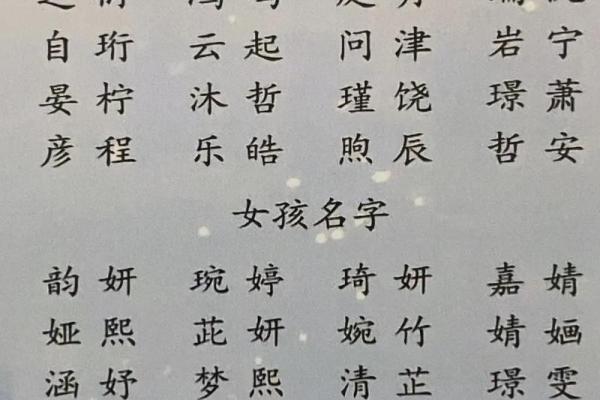 自珩 云起 问津 岩宁
晏柠 沐哲 瑾饶 璟萧
彦程 乐皓 煦辰 哲安
女孩名字
韵妍 琬婷 琦妍 嘉婧
娅熙 茈妍 婉竹 婧婳
涵妤 梦熙 清芷 璟雯